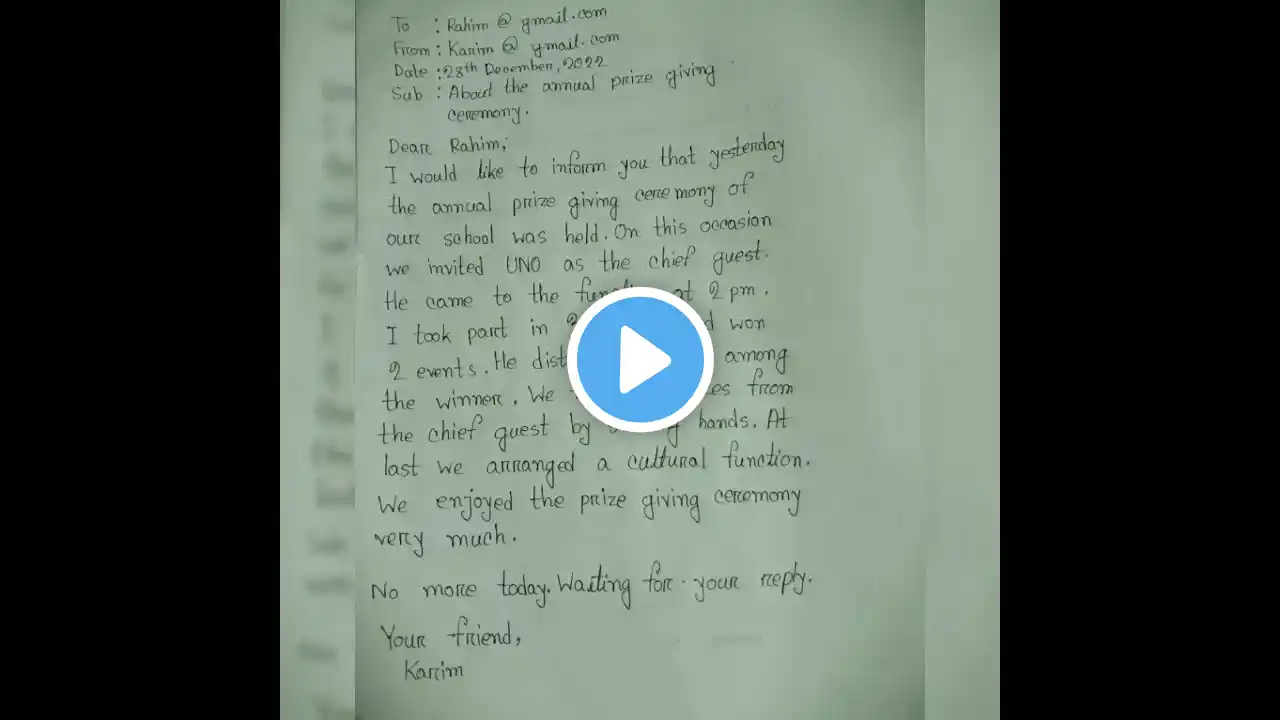 To : Rahim @ gmail.com
From : Karim @ gmail.com
Date : 28th December, 2022
Sub : About the annual prize giving
ceremony.
Dear Rahim,
I would like to inform you that yesterday
the annual prize giving ceremony of
our school was held. On this occasion
we invited UNO as the chief guest.
He came to the at 2 pm.
I took part in won
2 events. He among
the winner. We from
the chief guest by hands. At
last we arranged a cultural function.
We enjoyed the prize giving ceremony
very much.
No more today. Waiting for your reply.
Your friend,
Karim